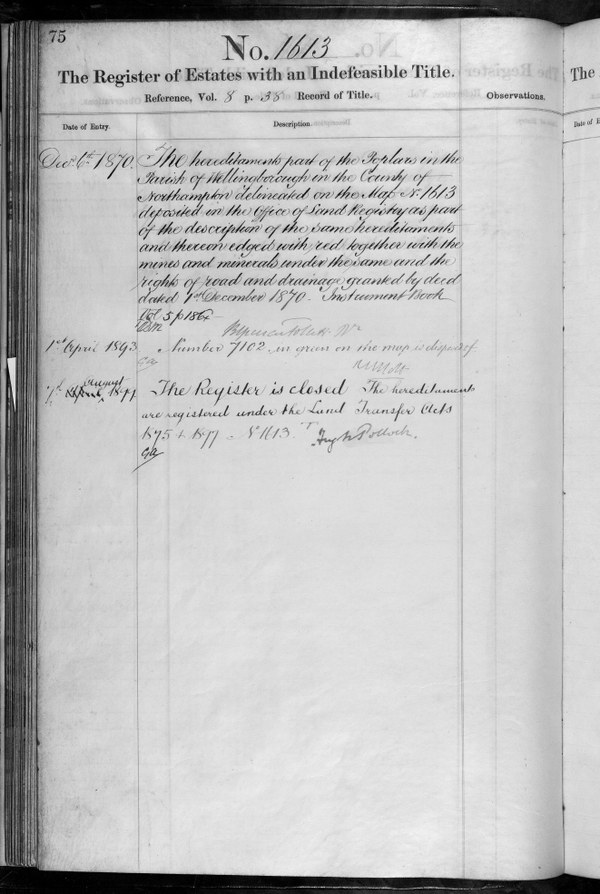 75
No. 1613
The Register of Estates with an Indefeasible Title.
Reference, Vol. 8 p. 38 Record of Title.
Observations.
Date of Entry.
Description.
Decr 6th 1870.
The hereditaments part of the Poplars in the
Parish of Wellingborough in the County of
Northampton delineated on the Map No. 1613
deposited in the Office of Land Registry as part
of the description of the same hereditaments
and thereon edged with red together with the
mines and minerals under the same and the
rights of road and drainage granted by deed
dated 1st December 1870. Instrument Book
Vol. 5 p 186
1st April 1893
Number 7102, in green on the map is disposed of
7th August
The Register is closed The hereditaments
are registered under the Land Transfer Acts
1875 & 1897 No 1613 "T"
Hugh Pollock.
The
Date of E